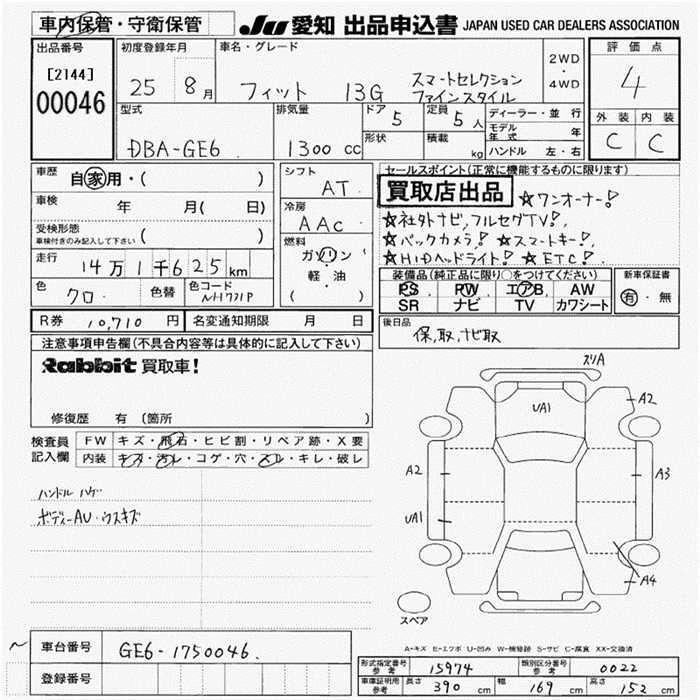 車内保管・守衛保管 JU 愛知 出品申込書 JAPAN USED CAR DEALERS ASSOCIATION
出品番号 初度登録年月 車名・グレード 2WD・4WD 評価点
[2144] 25 8月 フィット 13G スマートセレクション 4
00046 ファインスタイル
型式 排気量 ドア 5 定員 5人 ディーラー・並行 外装 内装
DBA-GE6 1300 cc 形状 積載 kg モデル年式 年 C C
ハンドル 左・右
車歴 自家用・( ) シフト AT セールスポイント(正常に機能するものに限ります)
車検 年 月( 日) 冷房 AAC 買取店出品 ☆ワンオーナー!
受検形態 ( ) ☆社外ナビ,フルセグTV!,
車検付きのみ記入して下さい 燃料 ☆バックカメラ! ☆スマートキー!,
走行 14万1千625km ガソリン・ ☆HIDヘッドライト! ☆ETC!
軽・油 装備品(純正品に限り○をつけてください) 新車保証書
色 クロ 色替 色コード NH731P ( ) PS PW エアB AW 有・無
SR ナビ TV カワシート
R券 10,710 円 名変通知期限 月 日 後日品
保,取,ナビ取
注意事項申告欄(不具合内容等は具体的に記入して下さい)
Rabbit 買取車!
修復歴 有 (箇所 )
検査員 FW キズ・飛石・ヒビ割・リペア跡・X要
記入欄 内装 キズ・汚レ・コゲ・穴・スレ・キレ・破レ
ハンドル ハゲ
ボディーAU・ウスキズ
スリA
A2
UA1
A2
A3
UA1
A4
スペア
A-キズ E-エクボ U-凹み W-補修跡 S-サビ C-腐食 XX-交換済
車台番号 GE6-1750046.
登録番号
形式指定番号 参考 15974 類別区分番号 参考 0022
車庫証明用 参考 長さ 390 cm 幅 169 cm 高さ 152 cm